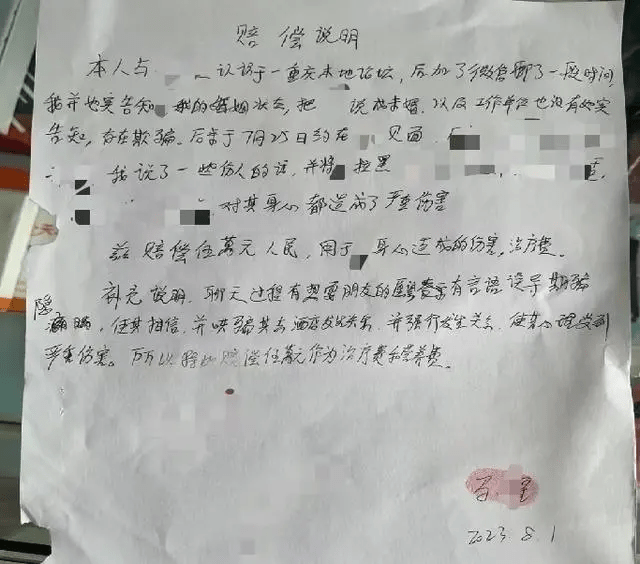 赔偿说明
本人与 认识于一重庆本地论坛，后加了微信聊了一段时间
我并如实告知 我的婚姻状态，把 说成未婚，以及工作单位也没有如实
告知，存在欺骗。后来于7月25日约在 见面
我说了一些伤人的话，并将 拉黑
对其身心都造成了严重伤害
兹赔偿伍萬元人民，用于 身心造成的伤害，治疗费。
补充说明，聊天过程有想要朋友的 有言语误导欺骗
隐瞒，使其相信，并哄骗其去酒店发生关系，并强行发生关系，使其心理受到
严重伤害。所以 赔偿伍萬元作为治疗费和营养费。
2023.8.1